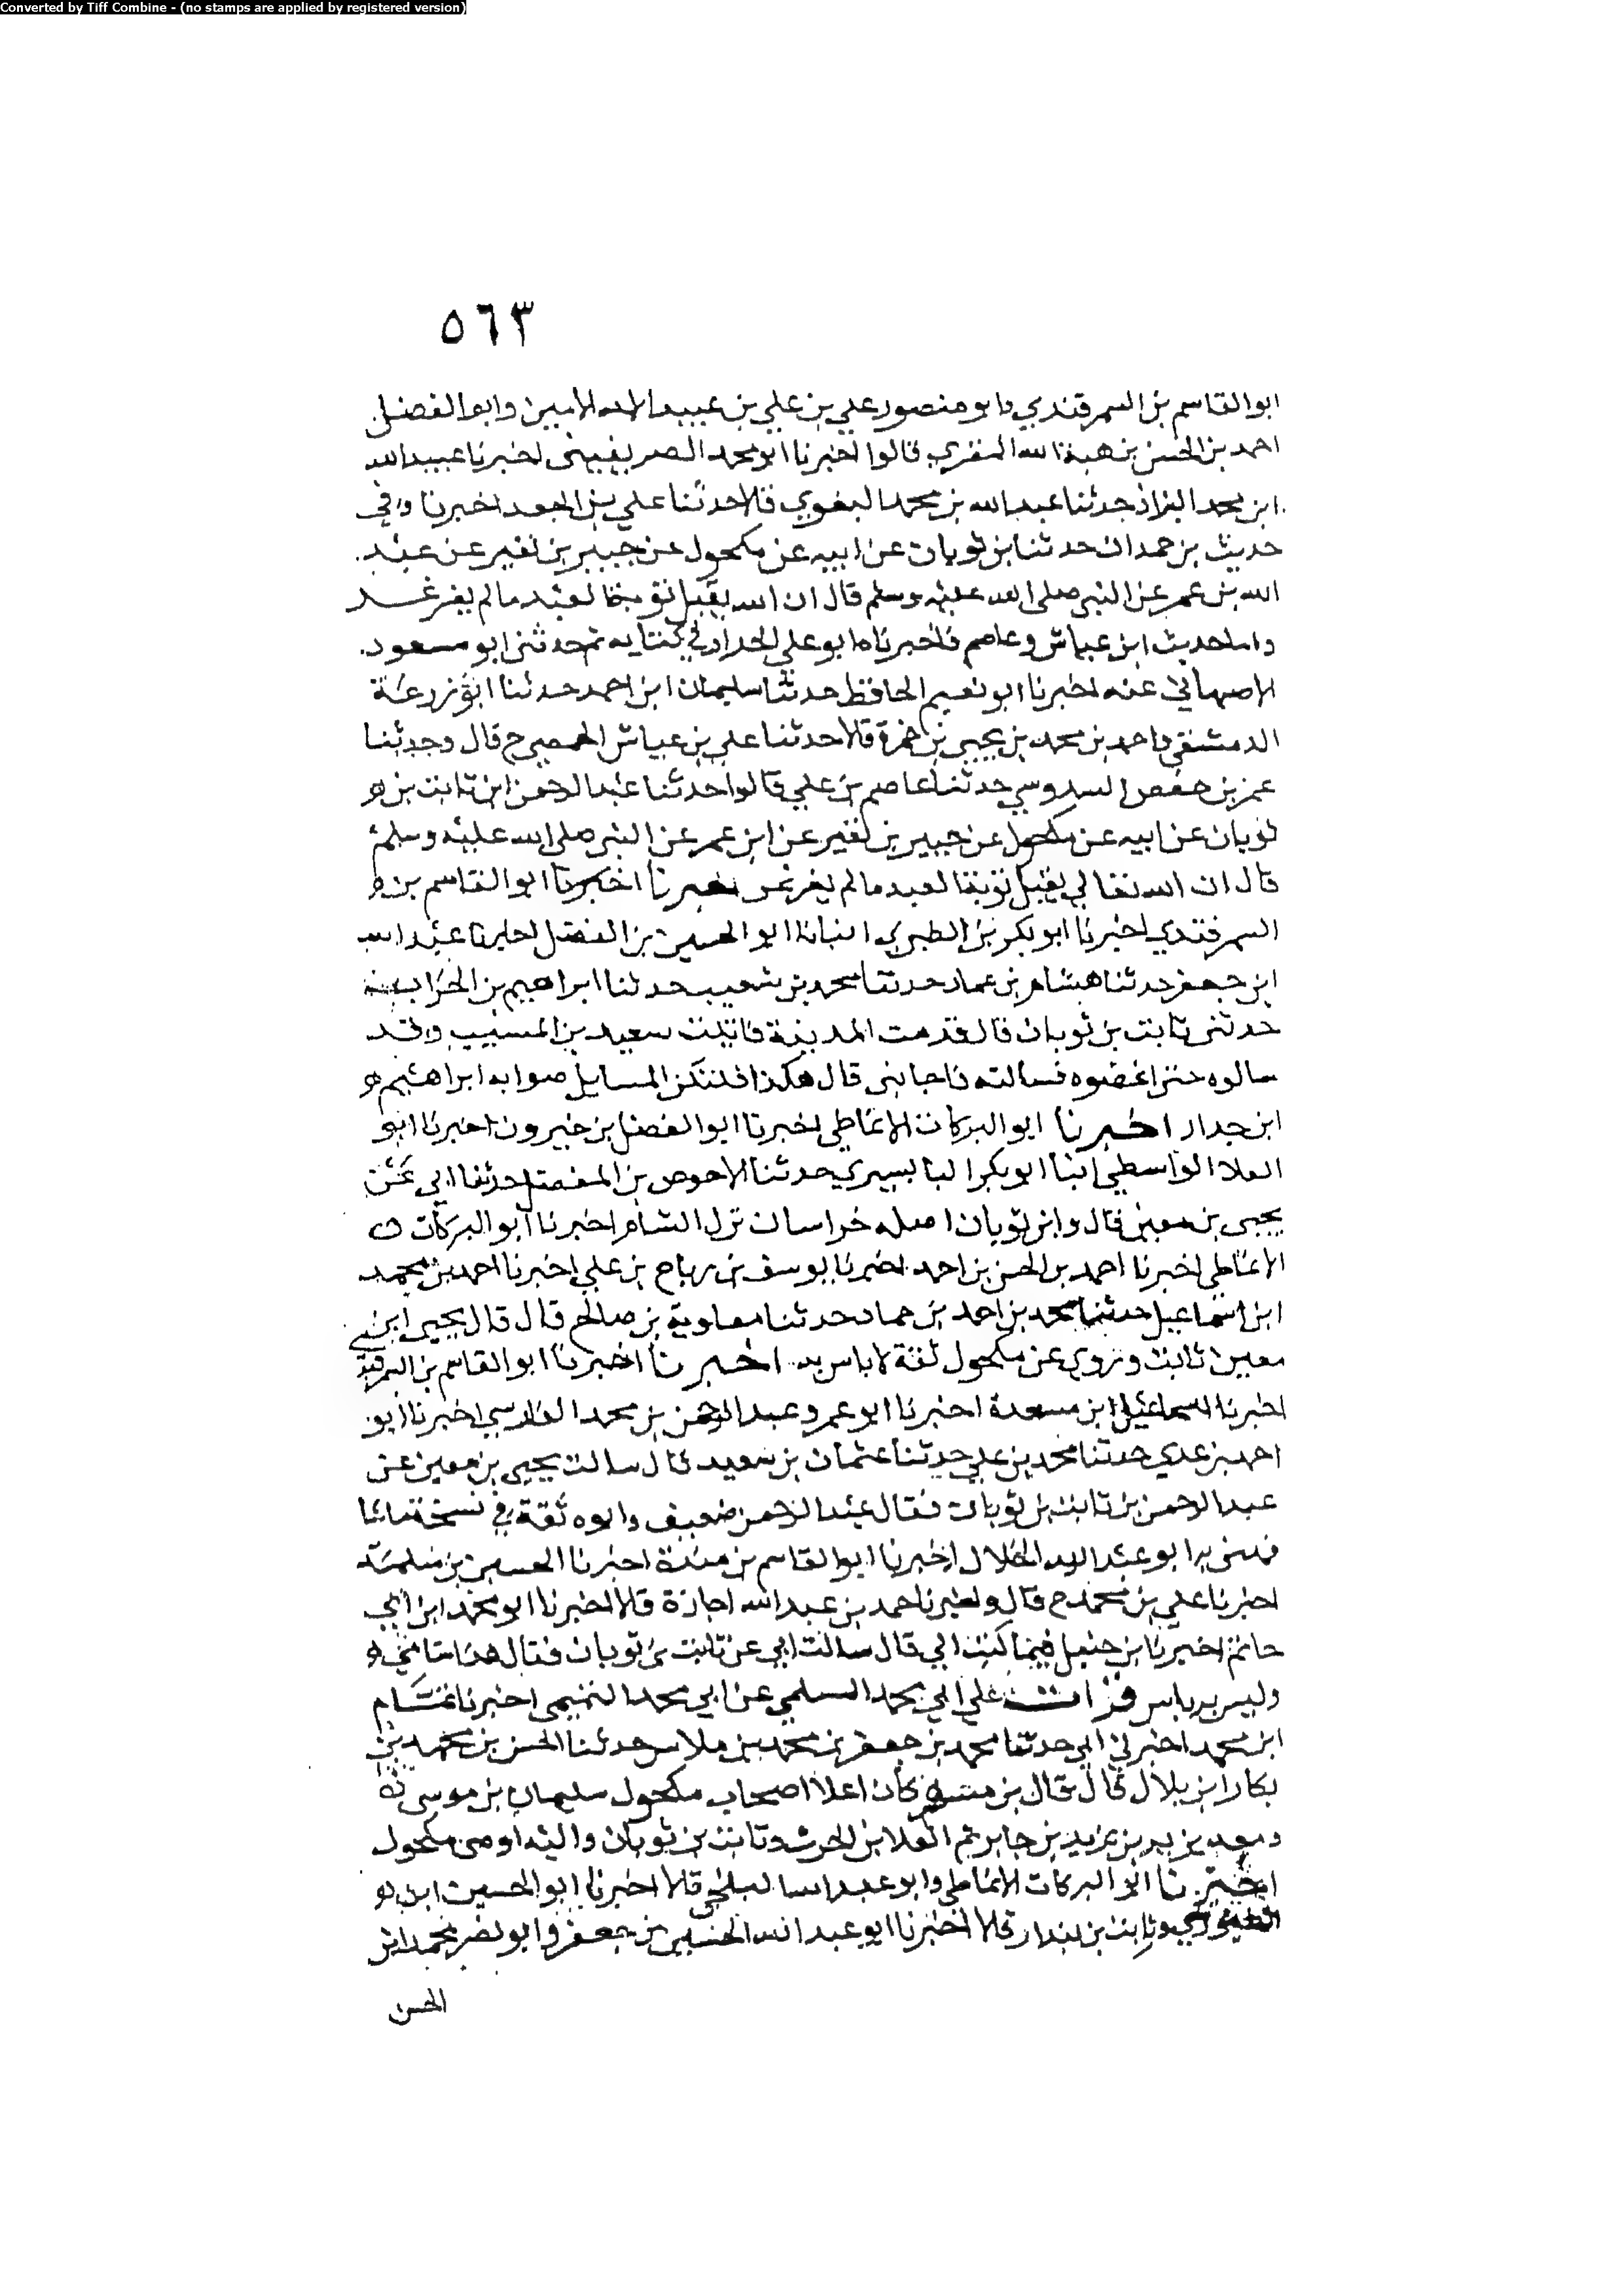 Converted by Tiff Combine - (no stamps are applied by registered version)
٥٦٣
ابو القاسم بن السمرقندي وابو منصور علي بن علي بن عبيد الله الامين وابو الفضل
احمد بن الحسن بن هبة الله المقري قالوا اخبرنا ابو محمد الصريفيني اخبرنا عبيد الله
ابن محمد البزاز حدثنا عبد الله بن محمد البغوي قالا حدثنا علي بن الجعد اخبرنا وفي
حديث بن حمدان حدثنا بن ثوبان عن ابيه عن مكحول عن جبير بن نفير عن عبد
الله بن عمر عن النبي صلى الله عليه وسلم قال ان الله يقبل توبة العبد ما لم يغرغر
واما حديث ابن عياش وعاصم فاخبرناه ابو علي الحداد في كتابه ثم حدثني ابو مسعود
الاصبهاني عنه اخبرنا ابو نعيم الحافظ حدثنا سليمان ابن احمد حدثنا ابو زرعة
الدمشقي واحمد بن محمد بن يحيى بن حمزة قالا حدثنا علي بن عياش الحمصي ح قال وحدثنا
عمر بن حفص السدوسي حدثنا عاصم بن علي قالوا حدثنا عبد الرحمن ابن ثابت بن
ثوبان عن ابيه عن مكحول عن جبير بن نفير عن ابن عمر عن النبي صلى الله عليه وسلم
قال ان الله تعالى يقبل توبة العبد ما لم يغرغر اخبرنا اخبرنا ابو القاسم بن
السمرقندي اخبرنا ابو بكر بن الطبري انبانا ابو الحسين بن الفضل اخبرنا عبد الله
ابن جعفر حدثنا هشام بن عمار حدثنا محمد بن شعيب حدثنا ابراهيم بن
حدثني ثابت بن ثوبان قال قدمت المدينة فاتيت سعيد بن المسيب وقد
سالوه حتى اغضبوه فسالته فاجابني قال هكذا فلتكن المسايل صوابه ابراهيم
ابن جدار اخبرنا ابو البركات الانماطي اخبرنا ابو الفضل بن خيرون اخبرنا ابو
العلا الواسطي انبا ابو بكر البابسيري حدثنا الاحوص بن المفضل حدثنا ابي عن
يحيى بن معين قال وابن ثوبان اصله خراسان نزل الشام اخبرنا ابو البركات
الانماطي اخبرنا احمد بن الحسن بن احمد اخبرنا يوسف بن رباح بن علي اخبرنا احمد بن محمد
ابن اسماعيل حدثنا محمد بن احمد بن حماد حدثنا معاوية بن صالح قال قال يحيى ابن
معين ثابت وروي عن مكحول ثقة لا باس به اخبرنا اخبرنا ابو القاسم بن السمرقندي
اخبرنا اسماعيل ابن مسعدة اخبرنا ابو عمرو عبد الرحمن بن محمد الفارسي اخبرنا ابو
احمد بن عدي حدثنا محمد بن علي حدثنا عثمان بن سعيد قال سالت يحيى بن معين عن
عبد الرحمن بن ثابت بن ثوبان فقال عبد الرحمن ضعيف وابوه ثقة في نسخة
به ابو عبد الله الخلال اخبرنا ابو القاسم بن مندة اخبرنا الحسين بن سلمة
اخبرنا علي بن محمد ح قال واخبرنا حمد بن عبد الله اجازة قالا اخبرنا ابو محمد ابن ابي
حاتم اخبرنا بن حنبل فيما كتب الي قال سالت ابي عن ثابت بن ثوبان فقال هذا شامي
وليس به باس قرات على ابي محمد السلمي عن ابي محمد التميمي اخبرنا تمام
ابن محمد اخبرني ابي حدثنا محمد بن جعفر بن محمد بن ملاس حدثنا الحسن بن محمد بن
بكار ابن بلال قال قال بن مسهر كان اعلا اصحاب مكحول سليمان بن موسى
ومعه يزيد بن يزيد بن جابر ثم العلا بن الحرث وثابت بن ثوبان واليه اوصى مكحول
اخبرنا ابو البركات الانماطي وابو عبد الله البلخي قالا اخبرنا ابو الحسين ابن
الطيوري وثابت بن بندار قالا اخبرنا ابو عبد الله الحسين بن جعفر وابو نصر محمد ابن
الحسن